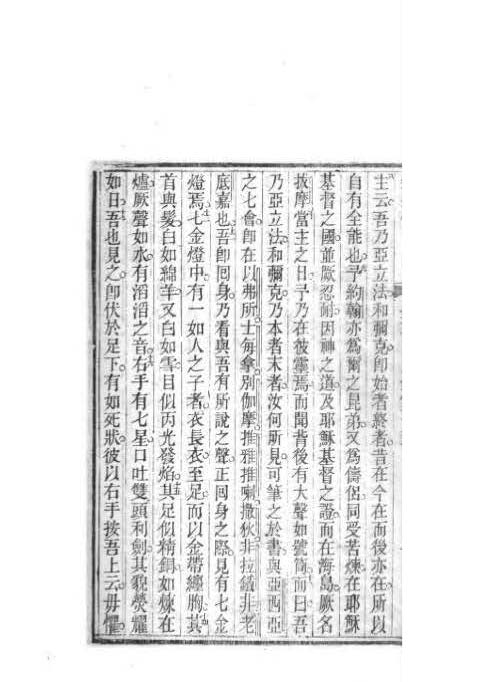 主云吾乃亞立法和彌克即始者終者昔在今在而後亦在所以
自有全能也予約翰亦為爾之昆弟又為儔侶同受苦煉在耶穌
基督之國並厥忍耐因神之道及耶穌基督之證而在海島厥名
拔摩當主之日予乃在彼靈焉而聞背後有大聲如號筒而曰吾
乃亞立法和彌克乃本者末者汝何所見可筆之於書與亞西亞
之七會即在以弗所士每拿別伽摩推雅推喇撒狄非拉鐵非老
底嘉也吾即囘身乃看與吾有所說之聲正囘身之際見有七金
燈焉七金燈中有一如人之子者衣長衣至足而以金帶纏胸其
首與髮白如綿羊又白如雪目似丙光發焰其足似精銅如煉在
爐厥聲如水有滔滔之音右手有七星口吐雙頭利劍其貌熒耀
如日吾也見之即伏於足下有如死狀彼以右手按吾上云毋懼